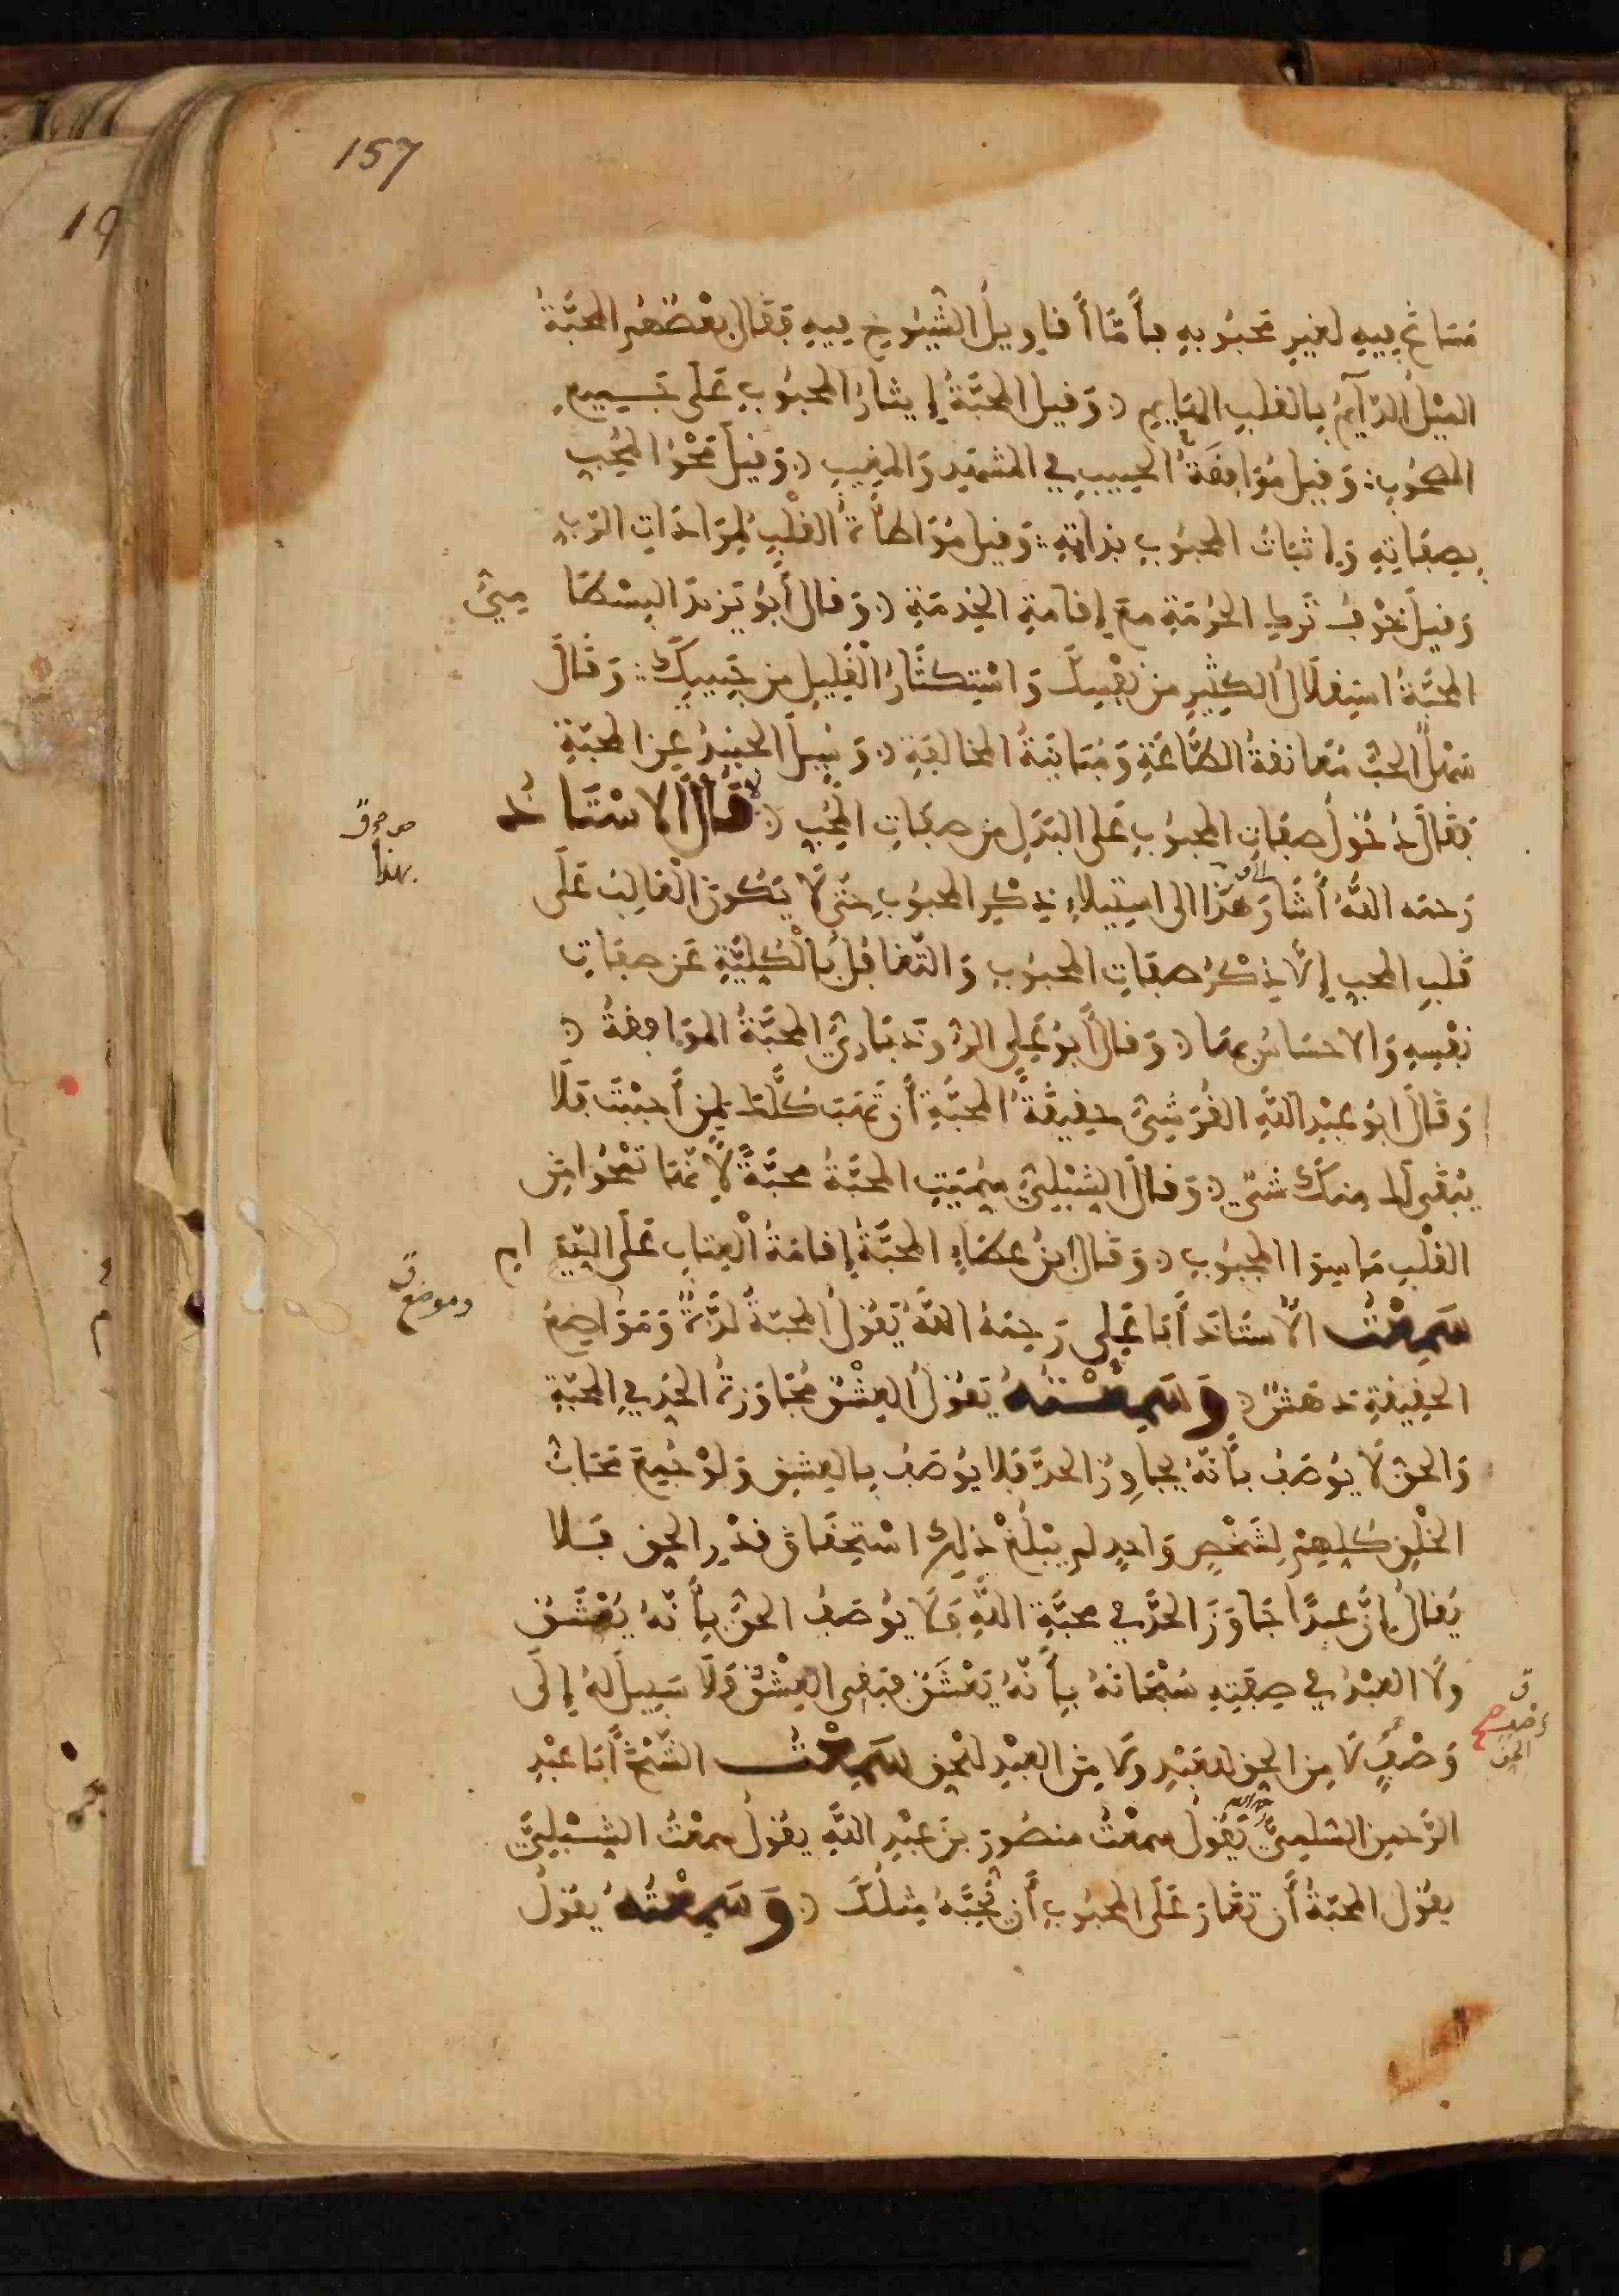 157
19
مَسَاغٌ فِيهِ لغيرِ مَحْبُوبِهِ فأمّا أقاوِيلُ الشُّيُوخِ فِيهِ فَقَالَ بَعْضُهُمُ المحَبَّةُ
الميْلُ الدّآئِمُ بِالقلبِ الهَايِمِ وَقيل المحَبَّةُ إِيثَارُ المحبُوبِ عَلَى جَمِيعِ
المصحُوبِ وَقيل مُوَافقَةُ الحَبِيبِ فِي المشهَدِ وَالمغِيبِ وَقيلَ مَحْوُ المحِبِّ
بِصِفَاتِهِ وَإثبَاتُ المحبُوبِ بِذاتِهِ وَقيل مُوَاطَأَةُ القلْبِ لِمُرَادَاتِ الرّبِّ
وَقيلَ خَوْفُ تَركِ الحُرْمَةِ مَعَ إقامَةِ الخِدمَةِ وَقال أَبُو يَزيدَ البسْطَامِيُّ
المحَبَّةُ استِقلَالُ الكثِيرِ من نفْسِكَ وَاسْتِكثَارُ القَلِيلِ من حَبِيبِكَ وَقَالَ
سَهْلٌ الحُبُّ مُعَانَقةُ الطَّاعَةِ وَمُبَايَنَةُ المخالفَةِ وَسُئِلَ الجنيدُ عن المحبّةِ
فَقَالَ دُخُولُ صِفَاتِ المحبُوبِ عَلَى البَدَلِ من صِفَاتِ المُحِبِّ قَالَ الاسْتَاذُ
رَحمَه اللَّهُ أَشَارَ هَذَا الى استِيلاءِ ذِكْرِ المحبُوبِ حَتَّى لَا يَكُونَ الغالِبُ عَلَى
قَلبِ المحبِّ إلَّا ذِكْرُ صِفَاتِ المحبُوبِ وَالتّغَافُلُ بِالْكُلِيَّةِ عَن صِفَاتِ
نَفْسِهِ وَالاحسَاسُ بِهَا وَقالَ أَبُو عَلِي الرُّوذَبَارِيُّ المحَبَّةُ المُوَافقةُ
وَقالَ ابُو عبْدِ اللَّهِ القُرَشِيُّ حقِيقَةُ المحَبَّةِ أَن تَهَبَ كُلَّكَ لِمن أَحبَبْتَ فَلَا
يَبْقَى لَكَ مِنكَ شيءٌ وَقالَ الشِّبْلِيُّ سُمِّيَتِ المحَبَّةُ محبَّةً لِأَنَّهَا تَمْحُو مِنَ
القلْبِ مَا سِوَا المحبُوبِ وَقالَ ابنُ عَطَاءٍ المحَبَّةُ إقامَةُ الْعِتابِ عَلَى الدَّوَامِ
سَمِعْتُ الاُسْتَاذَ أَبَا عَلِي رَحِمَهُ اللَّهُ يَقُولُ المحبّةُ لَذَّةٌ وَمَوَاضِعُ
الحقِيقَةِ دَهَشٌ وَسَمِعْتُهُ يَقُولُ العِشْقُ مُجَاوَزَةُ الحَدِّ فِي المحَبّةِ
وَالحقُّ لَا يُوصَفُ بأنّهُ يُجاوِزُ الحدَّ فلا يُوصَفُ بِالعِشقِ وَلَوْ جُمِعَ مَحَابُّ
الخلْقِ كُلِهِمْ لِشَخْصٍ وَاحدٍ لم يَبْلُغْ ذلِكَ اسْتِحقَاقَ قَدْرِ الحقِّ فَلا
يُقالُ إنَّ عبدًا جَاوَزَ الحدَّ في محبَّةِ اللَّهِ فَلَا يُوصَفُ الحقُّ بِأنّهُ يَعْشَقُ
ولا العبْدُ في صِفَتِهِ سُبْحَانَهُ بِأَنّهُ يَعْشَقُ فنُفِيَ العِشْقُ فَلَا سَبِيلَ لهُ إلَى
وَصْفٍ لَا مِنَ الحقِّ لِلعَبْدِ وَلَا مِنَ العبْدِ لِلحْقِّ سَمِعْتُ الشَّيْخَ أَبَا عبْدِ
الرَّحمنِ السُّلمِيَّ يَقُولُ سمعْتُ منصُورَ بنَ عبْدِ اللَّهِ يقولُ سمعْتُ الشِّبْلِيَّ
يقولُ المحَبّةُ أَن تَغَارَ عَلَى المحبُوبِ أَن يُحِبَّهُ مِثلُكَ وَسَمِعْتُهُ يَقُولُ
بهذا